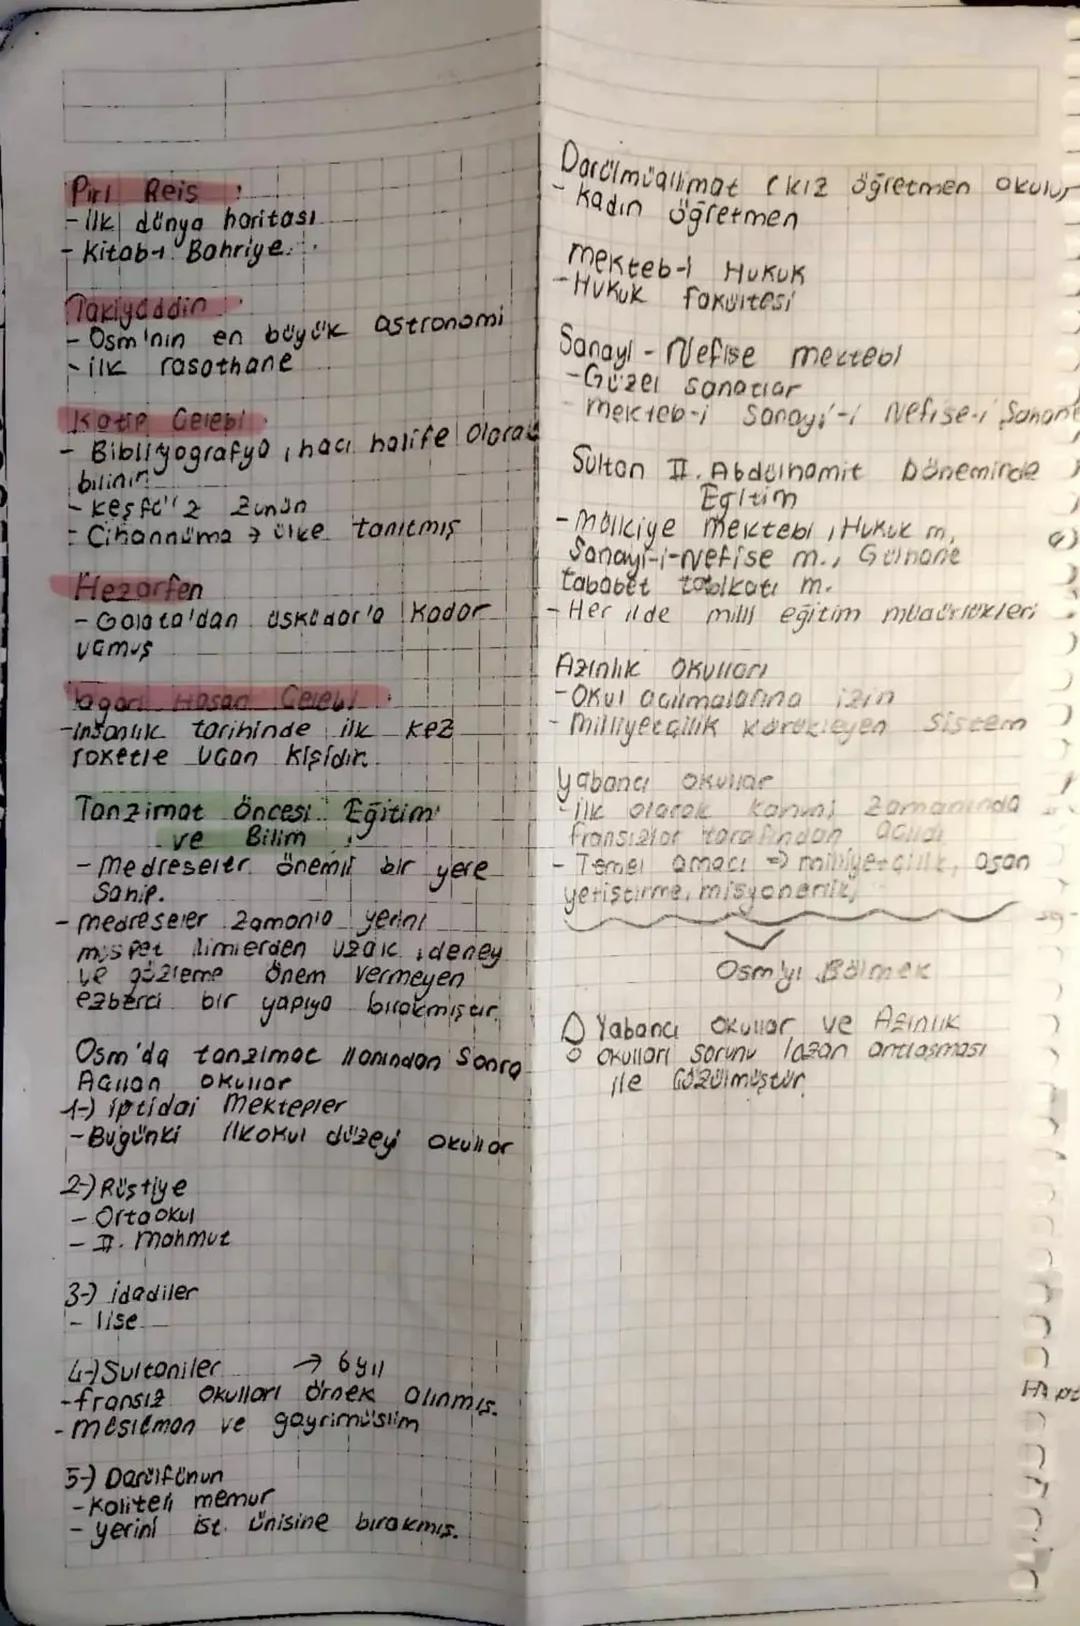 Piri Reis :
- ilk dünya haritası
- Kitab-ı Bahriye.
Takiyüddin
- Osm'nın en büyük astronomi
- ilk rasathane
Katip Çelebi
- Bibliyografya, hacı halife olarak
bilinir
- Keşfü'z Zunün
- Cihannüma → ülke tanıtmış
Hezarfen
- Galata'dan üsküdar'a kadar
uçmuş
Lagari Hasan Çelebi
- insanlık tarihinde ilk kez
roketle uçan kişidir.
Tanzimat öncesi Eğitim
ve Bilim :
- medreseler önemli bir yere
sahip.
- medreseler zamanla yerini
müspet ilimlerden uzak, deney
ve gözleme önem vermeyen
ezberci bir yapıya bırakmıştır.
Osm'da tanzimat ilanından sonra
Açılan okullar
1-) iptidai mektepler
- Bugünki ilkokul düzeyi okullar
2-) Rüştiye
- Ortaokul
- II. mahmut
3-) idadiler
- lise
4-) Sultaniler → 6 yıl
- fransız okulları örnek alınmış.
- müslüman ve gayrimüslim
5-) Darülfünun
- Kaliteli memur
- yerini ist. ünisine bırakmış.
Darülmüallimat (kız öğretmen okulu)
- Kadın öğretmen
mekteb-i Hukuk
- Hukuk fakültesi
Sanayi - Nefise mektebi
- Güzel sanatlar
- mekteb-i Sanayi'-i Nefise-i Şahane
Sultan II. Abdülhamit Döneminde
Eğitim
- mülkiye mektebi, Hukuk m,
Sanayi-i-Nefise m., Gülhane
tababet tatbikatı m.
- Her ilde milli eğitim müdürlükleri
Azınlık Okulları
- Okul açılmalarına izin
- milliyetçilik körükleyen sistem
Yabancı okullar
- ilk olarak kanuni zamanında
fransızlar tarafından açıldı
- Temel amacı ⇒ milliyetçilik, ajan
yetiştirme, misyonerlik,
Osm'yı Bölmek
Yabancı okullar ve Azınlık
okulları sorunu lozan antlaşması
ile çözülmüştür.